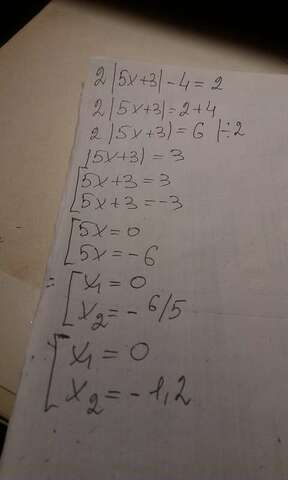 2|5x+3|-4=2
2|5x+3|=2+4
2|5x+3)=6 |÷2
|5x+3)=3
[5x+3=3
5x+3=-3
[5x=0
5x=-6
[x₁=0
x₂=-6/5
[x₁=0
x₂=-1,2